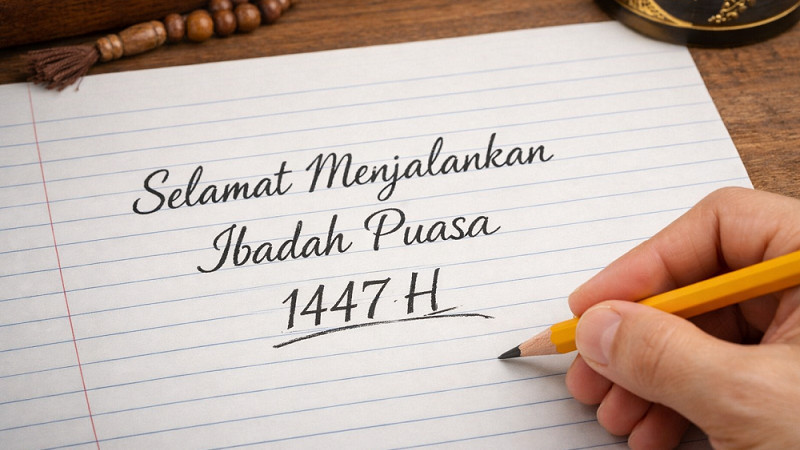 Selamat Menjalankan
Ibadah Puasa
1447 H